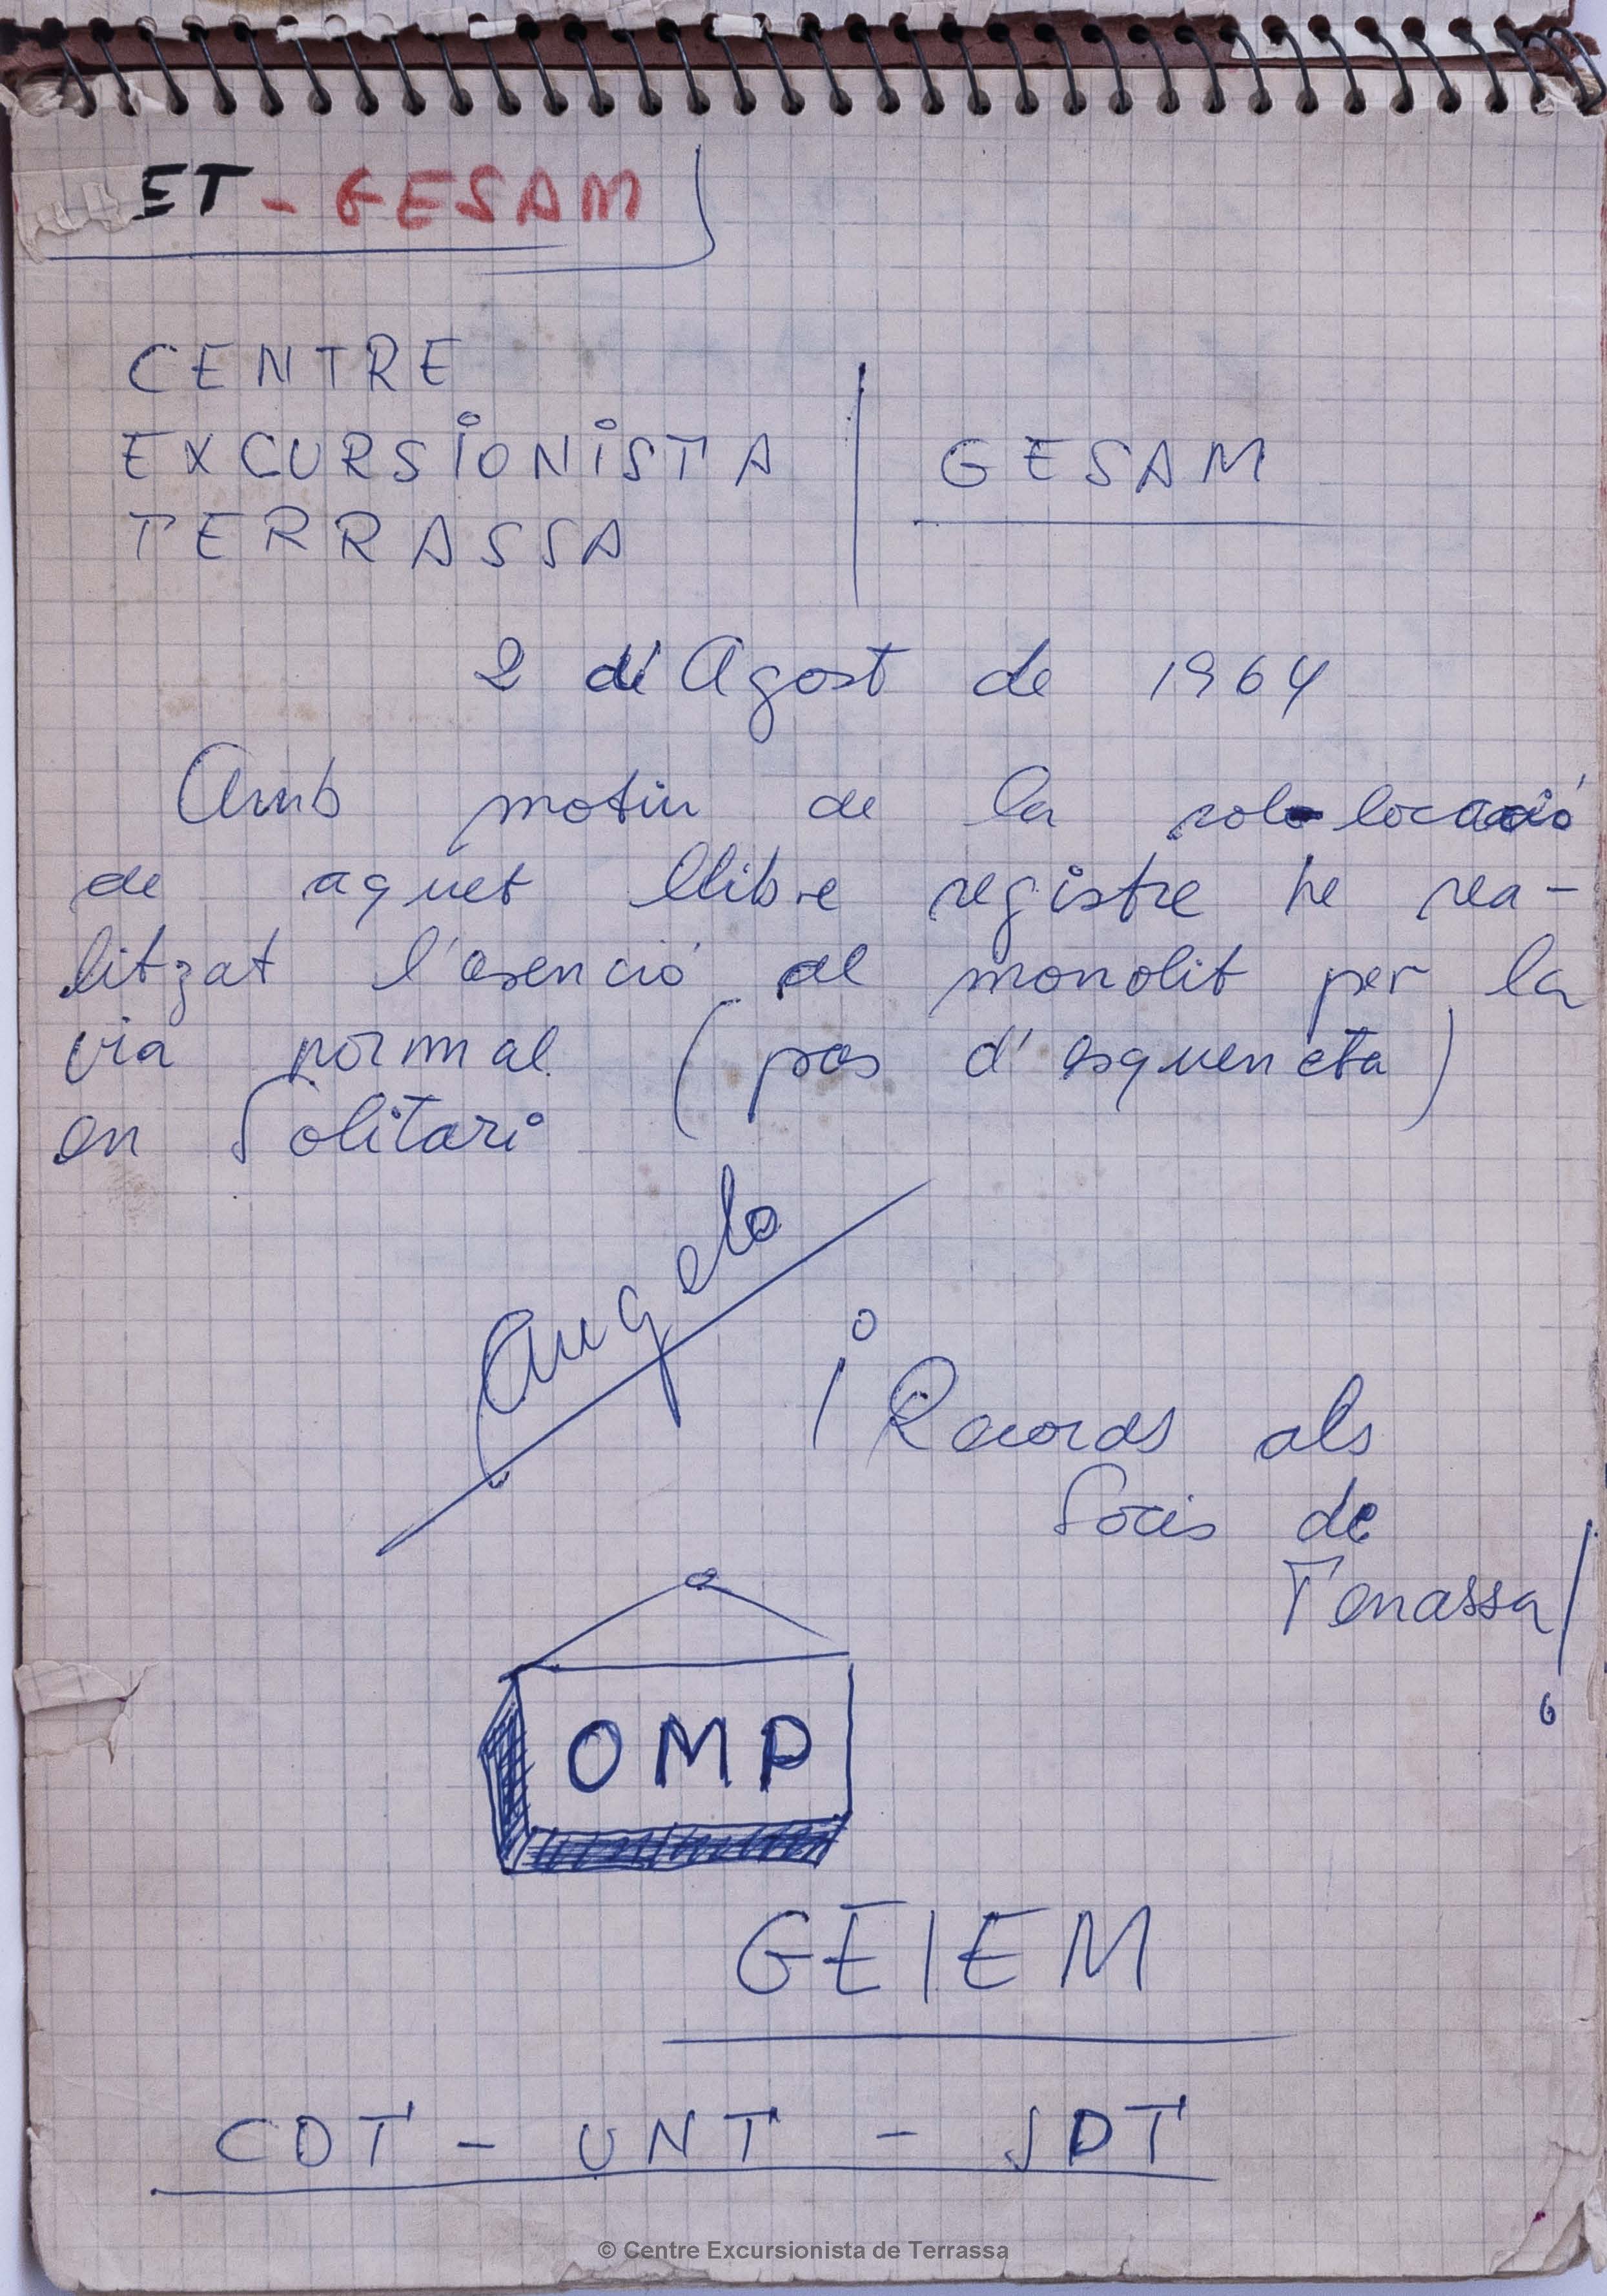 ET - GESAM
CENTRE
EXCURSIONISTA
TERRASSA
GESAM
2 de Agost de 1964
Amb motiu de la col-locació
de aquet llibre registre he rea-
litzat l'asenció al monolit per la
via normal (pas d'esqueneta)
en Solitari
Angelo
¡Records als
Socis de
Terrassa!
OMP
GEIEM
CDT - UNT - SDT
© Centre Excursionista de Terrassa